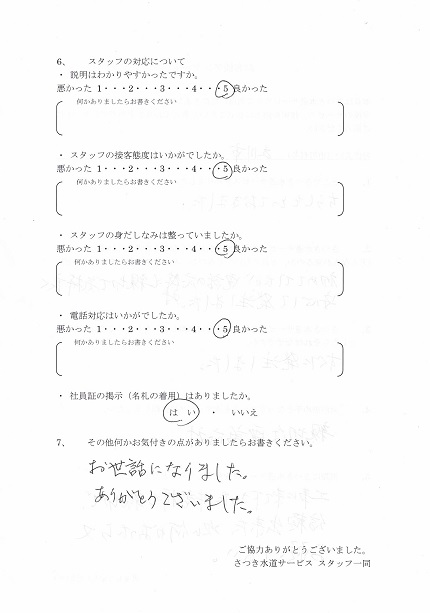 6、 スタッフの対応について
・ 説明はわかりやすかったですか。
悪かった 1・・・2・・・3・・・4・・・5 良かった
何かありましたらお書きください
・ スタッフの接客態度はいかがでしたか。
悪かった 1・・・2・・・3・・・4・・・5 良かった
何かありましたらお書きください
・ スタッフの身だしなみは整っていましたか。
悪かった 1・・・2・・・3・・・4・・・5 良かった
何かありましたらお書きください
・ 電話対応はいかがでしたか。
悪かった 1・・・2・・・3・・・4・・・5 良かった
何かありましたらお書きください
・ 社員証の掲示（名札の着用）はありましたか。
はい ・ いいえ
7、 その他何かお気付きの点がありましたらお書きください。
お世話になりました。
ありがとうございました。
ご協力ありがとうございました。
さつき水道サービス スタッフ一同